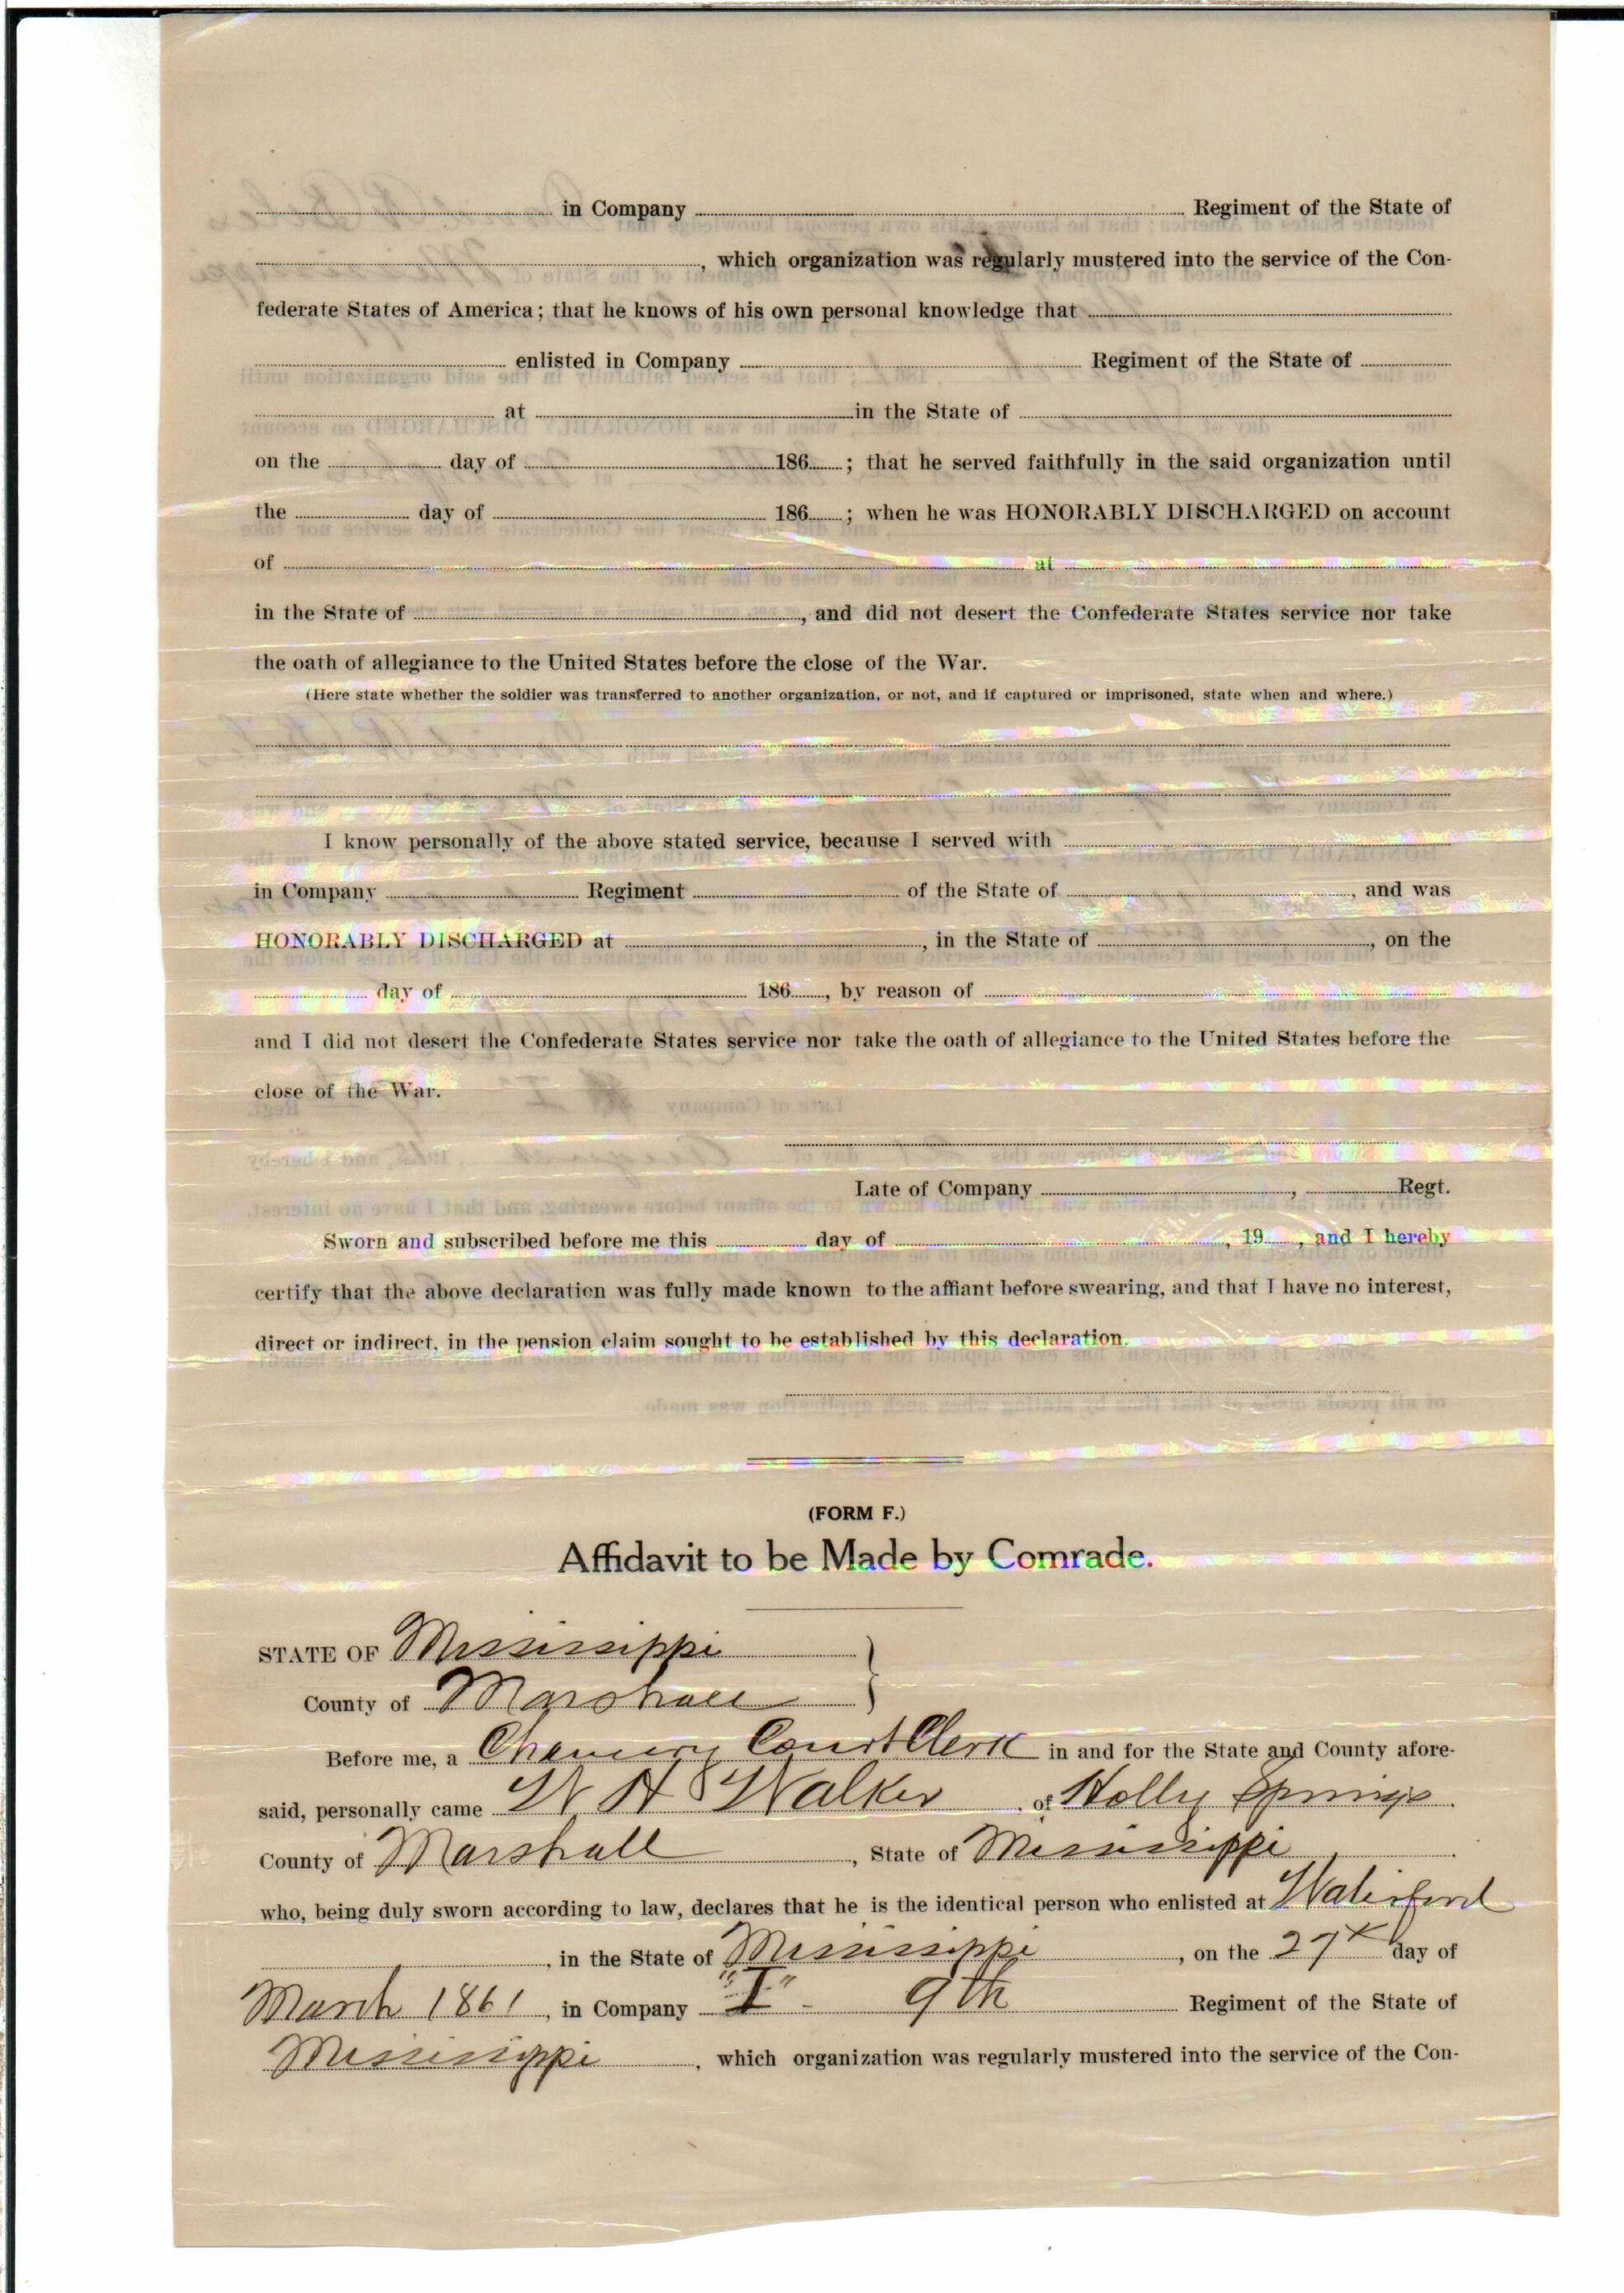 in Company Regiment of the State of
, which organization was regularly mustered into the service of the Con-
federate States of America; that he knows of his own personal knowledge that
enlisted in Company Regiment of the State of
at in the State of
on the day of 186 ; that he served faithfully in the said organization until
the day of 186 ; when he was HONORABLY DISCHARGED on account
of at
in the State of , and did not desert the Confederate States service nor take
the oath of allegiance to the United States before the close of the War.
(Here state whether the soldier was transferred to another organization, or not, and if captured or imprisoned, state when and where.)
I know personally of the above stated service, because I served with
in Company Regiment of the State of , and was
HONORABLY DISCHARGED at , in the State of , on the
day of 186 , by reason of
and I did not desert the Confederate States service nor take the oath of allegiance to the United States before the
close of the War.
Late of Company , Regt.
Sworn and subscribed before me this day of , 19 , and I hereby
certify that the above declaration was fully made known to the affiant before swearing, and that I have no interest,
direct or indirect, in the pension claim sought to be established by this declaration.
(FORM F.)
Affidavit to be Made by Comrade.
STATE OF Mississippi
County of Marshall
Before me, a Chancery Court Clerk in and for the State and County afore-
said, personally came W H Walker of Holly Springs
County of Marshall , State of Mississippi
who, being duly sworn according to law, declares that he is the identical person who enlisted at Waterford
, in the State of Mississippi , on the 27th day of
March 1861 , in Company "I" - 9th Regiment of the State of
Mississippi , which organization was regularly mustered into the service of the Con-